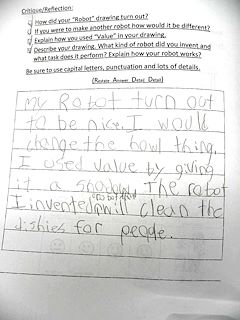 Critique/Reflection:
How did your "Robot" drawing turn out?
If you were to make another robot how would it be different?
Explain how you used "Value" in your drawing.
Describe your drawing. What kind of robot did you invent and
what task does it perform? Explain how your robot works?
Be sure to use capital letters, punctuation and lots of details.
(Restate Answer Detail Detail)
my Robot turn out
to be nice. I would
change the howl thing.
I used value by giving
it a shadow. The robot
I invented will clean the
dishies for people.